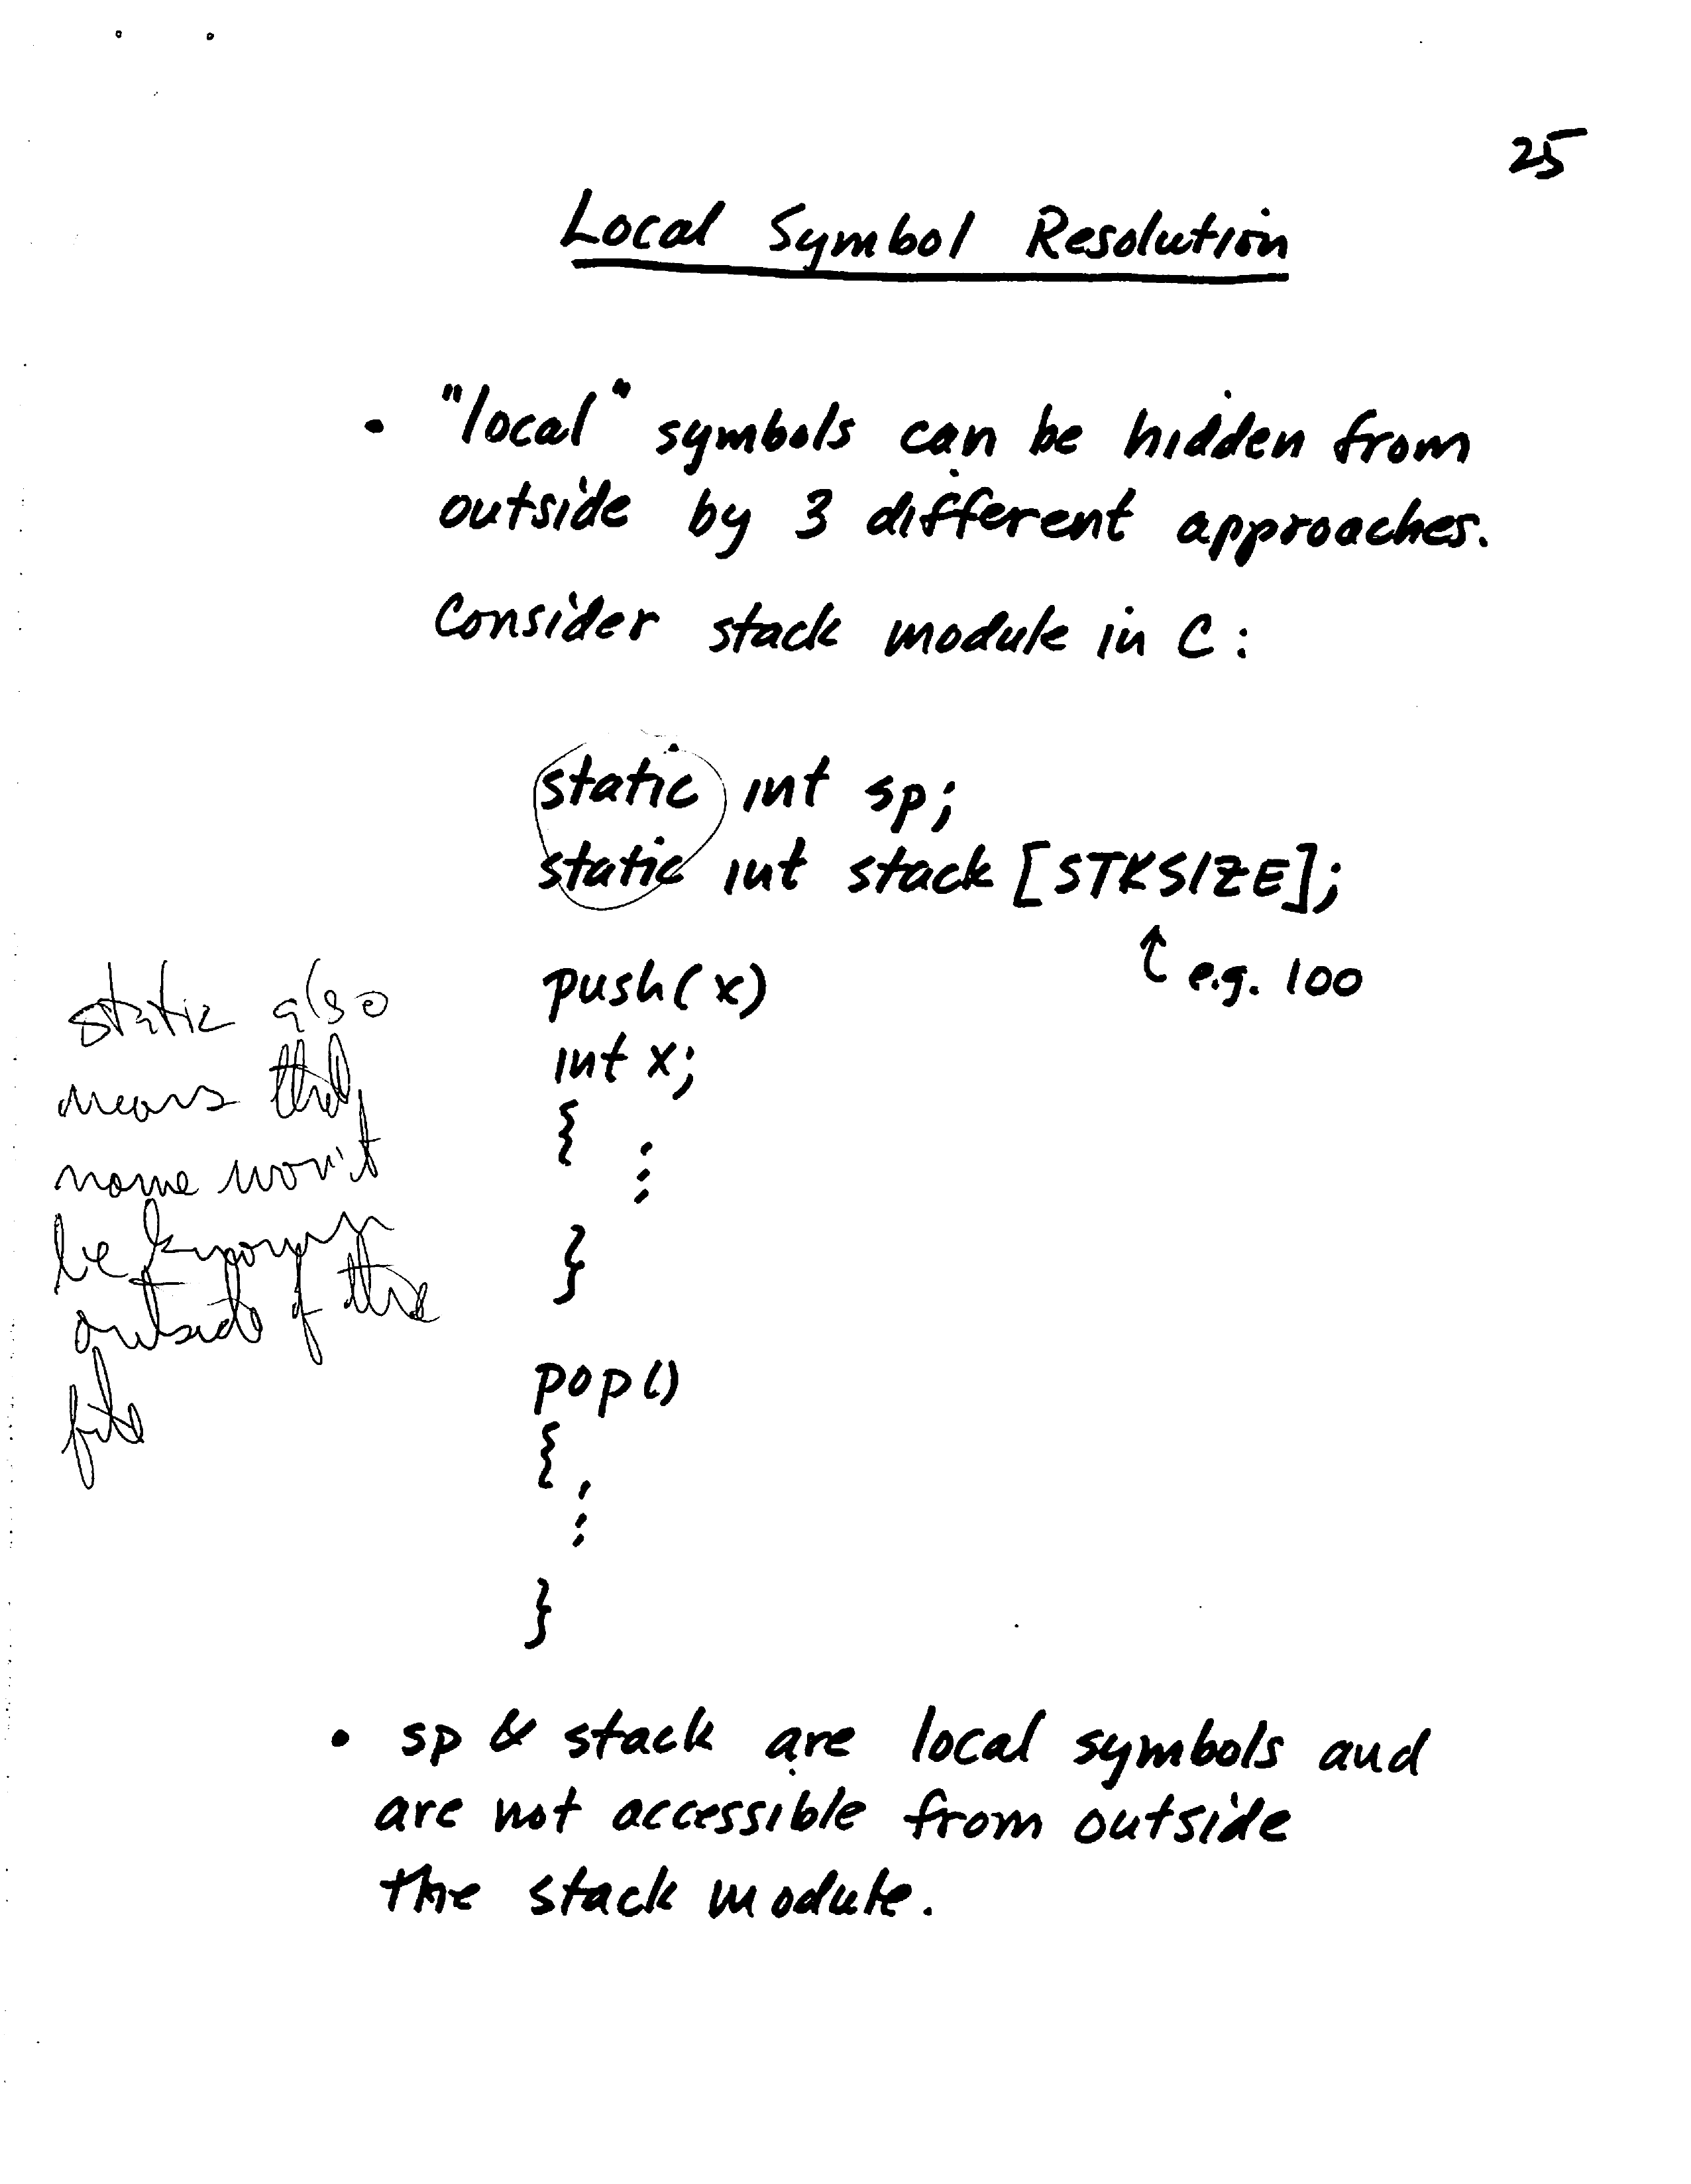 25
Local Symbol Resolution
• "local" symbols can be hidden from
outside by 3 different approaches.
Consider stack module in C:
static int sp;
static int stack [STKSIZE];
↑ e.g. 100
push(x)
int x;
{
⋮
}
pop()
{
⋮
}
static also
means that
name won't
be known
outside of this
file
• sp & stack are local symbols and
are not accessible from outside
the stack module.